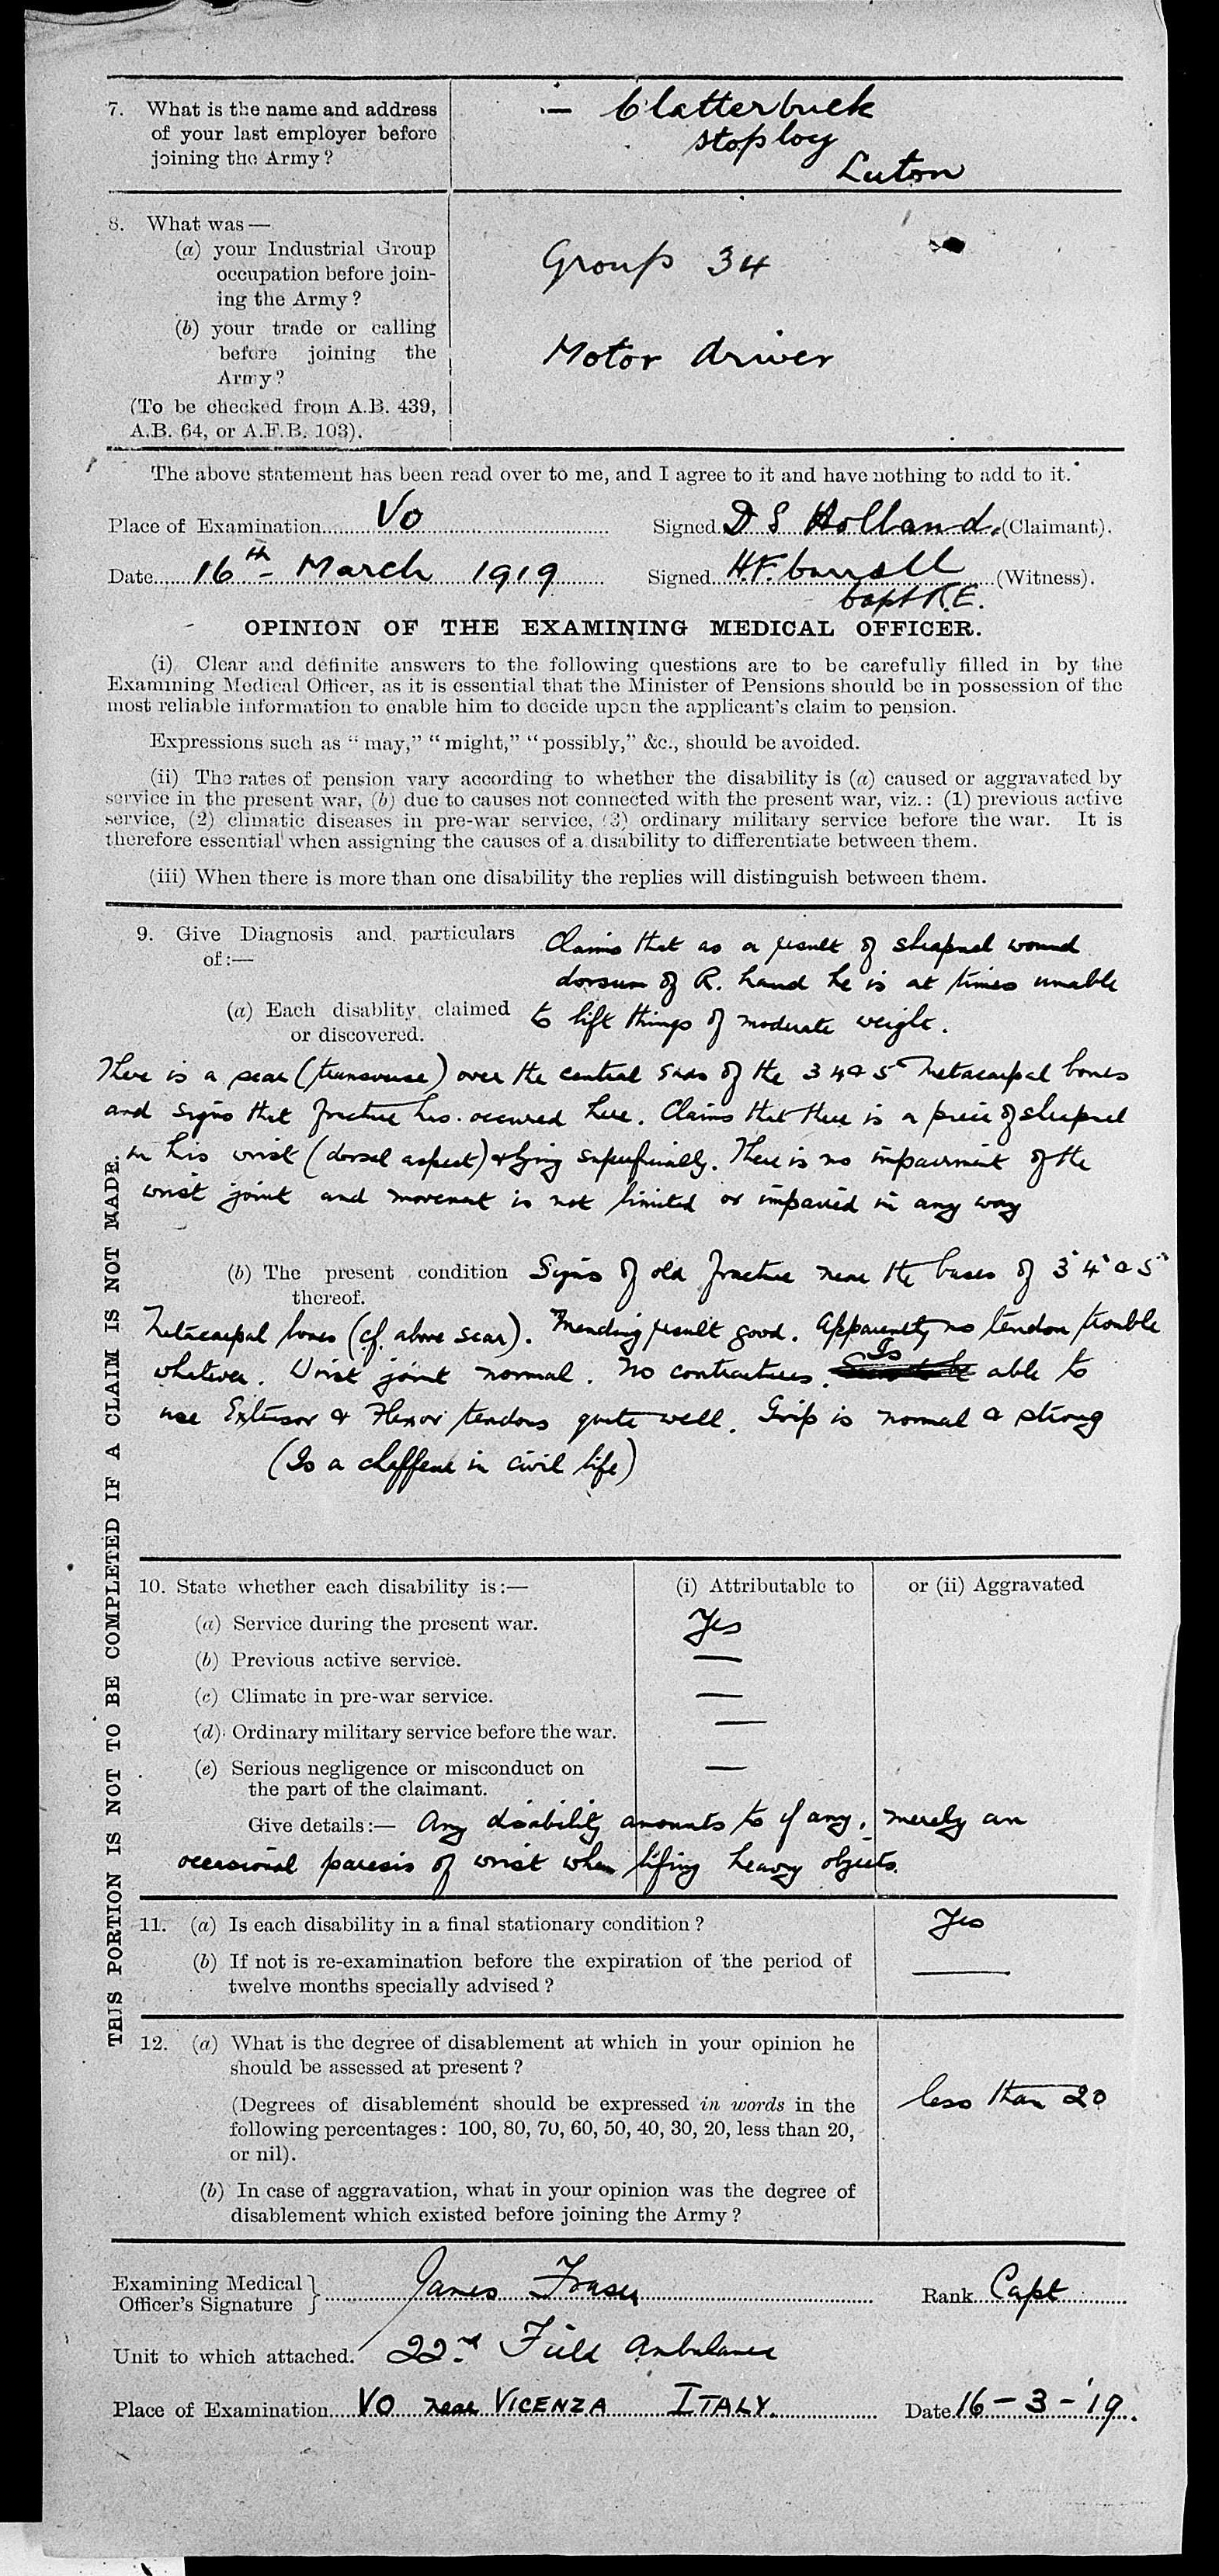 7. What is the name and address
of your last employer before
joining the Army?
— Clatterbuck
Stopley
Luton
8. What was—
(a) your Industrial Group
occupation before join-
ing the Army?
Group 34
(b) your trade or calling
before joining the
Army?
Motor driver
(To be checked from A.B. 439,
A.B. 64, or A.F.B. 103).
The above statement has been read over to me, and I agree to it and have nothing to add to it.
Place of Examination Vo Signed D S Holland. (Claimant).
Date 16th March 1919 Signed H.F. (Witness).
Capt R.E.
OPINION OF THE EXAMINING MEDICAL OFFICER.
(i) Clear and definite answers to the following questions are to be carefully filled in by the
Examining Medical Officer, as it is essential that the Minister of Pensions should be in possession of the
most reliable information to enable him to decide upon the applicant's claim to pension.
Expressions such as "may," "might," "possibly," &c., should be avoided.
(ii) The rates of pension vary according to whether the disability is (a) caused or aggravated by
service in the present war, (b) due to causes not connected with the present war, viz.: (1) previous active
service, (2) climatic diseases in pre-war service, (3) ordinary military service before the war. It is
therefore essential when assigning the causes of a disability to differentiate between them.
(iii) When there is more than one disability the replies will distinguish between them.
9. Give Diagnosis and particulars
of:—
(a) Each disablity claimed
or discovered.
Claims that as a result of shrapnel wound
dorsum of R. hand he is at times unable
to lift things of moderate weight.
There is a scar (transverse) over the central ends of the 3 4 & 5 Metacarpal bones
and signs that fracture has occured here. Claims that there is a piece of shrapnel
in his wrist (dorsal aspect) & lying superficially. There is no impairment of the
wrist joint and movement is not limited or impaired in any way
(b) The present condition
thereof.
Signs of old fracture near the bases of 3 4 & 5
Metacarpal bones (cf. above scar). Mending result good. Apparently no tendon trouble
whatever. Wrist joint normal. No contractures. Is able to
use Extensor & Flexor tendons quite well. Grip is normal & strong
(Is a chaffeur in civil life)
THIS PORTION IS NOT TO BE COMPLETED IF A CLAIM IS NOT MADE.
10. State whether each disability is:— (i) Attributable to or (ii) Aggravated
(a) Service during the present war. Yes
(b) Previous active service. —
(c) Climate in pre-war service. —
(d) Ordinary military service before the war. —
(e) Serious negligence or misconduct on —
the part of the claimant.
Give details:— Any disability amounts to if any, merely an
occasional paresis of wrist when lifing heavy objects.
11. (a) Is each disability in a final stationary condition? Yes
(b) If not is re-examination before the expiration of the period of
twelve months specially advised? —
12. (a) What is the degree of disablement at which in your opinion he
should be assessed at present?
(Degrees of disablement should be expressed in words in the
following percentages: 100, 80, 70, 60, 50, 40, 30, 20, less than 20,
or nil).
less than 20
(b) In case of aggravation, what in your opinion was the degree of
disablement which existed before joining the Army?
Examining Medical
Officer's Signature } James Fraser Rank Capt
Unit to which attached. 22nd Field Ambulance
Place of Examination VO near VICENZA ITALY. Date 16-3-'19.